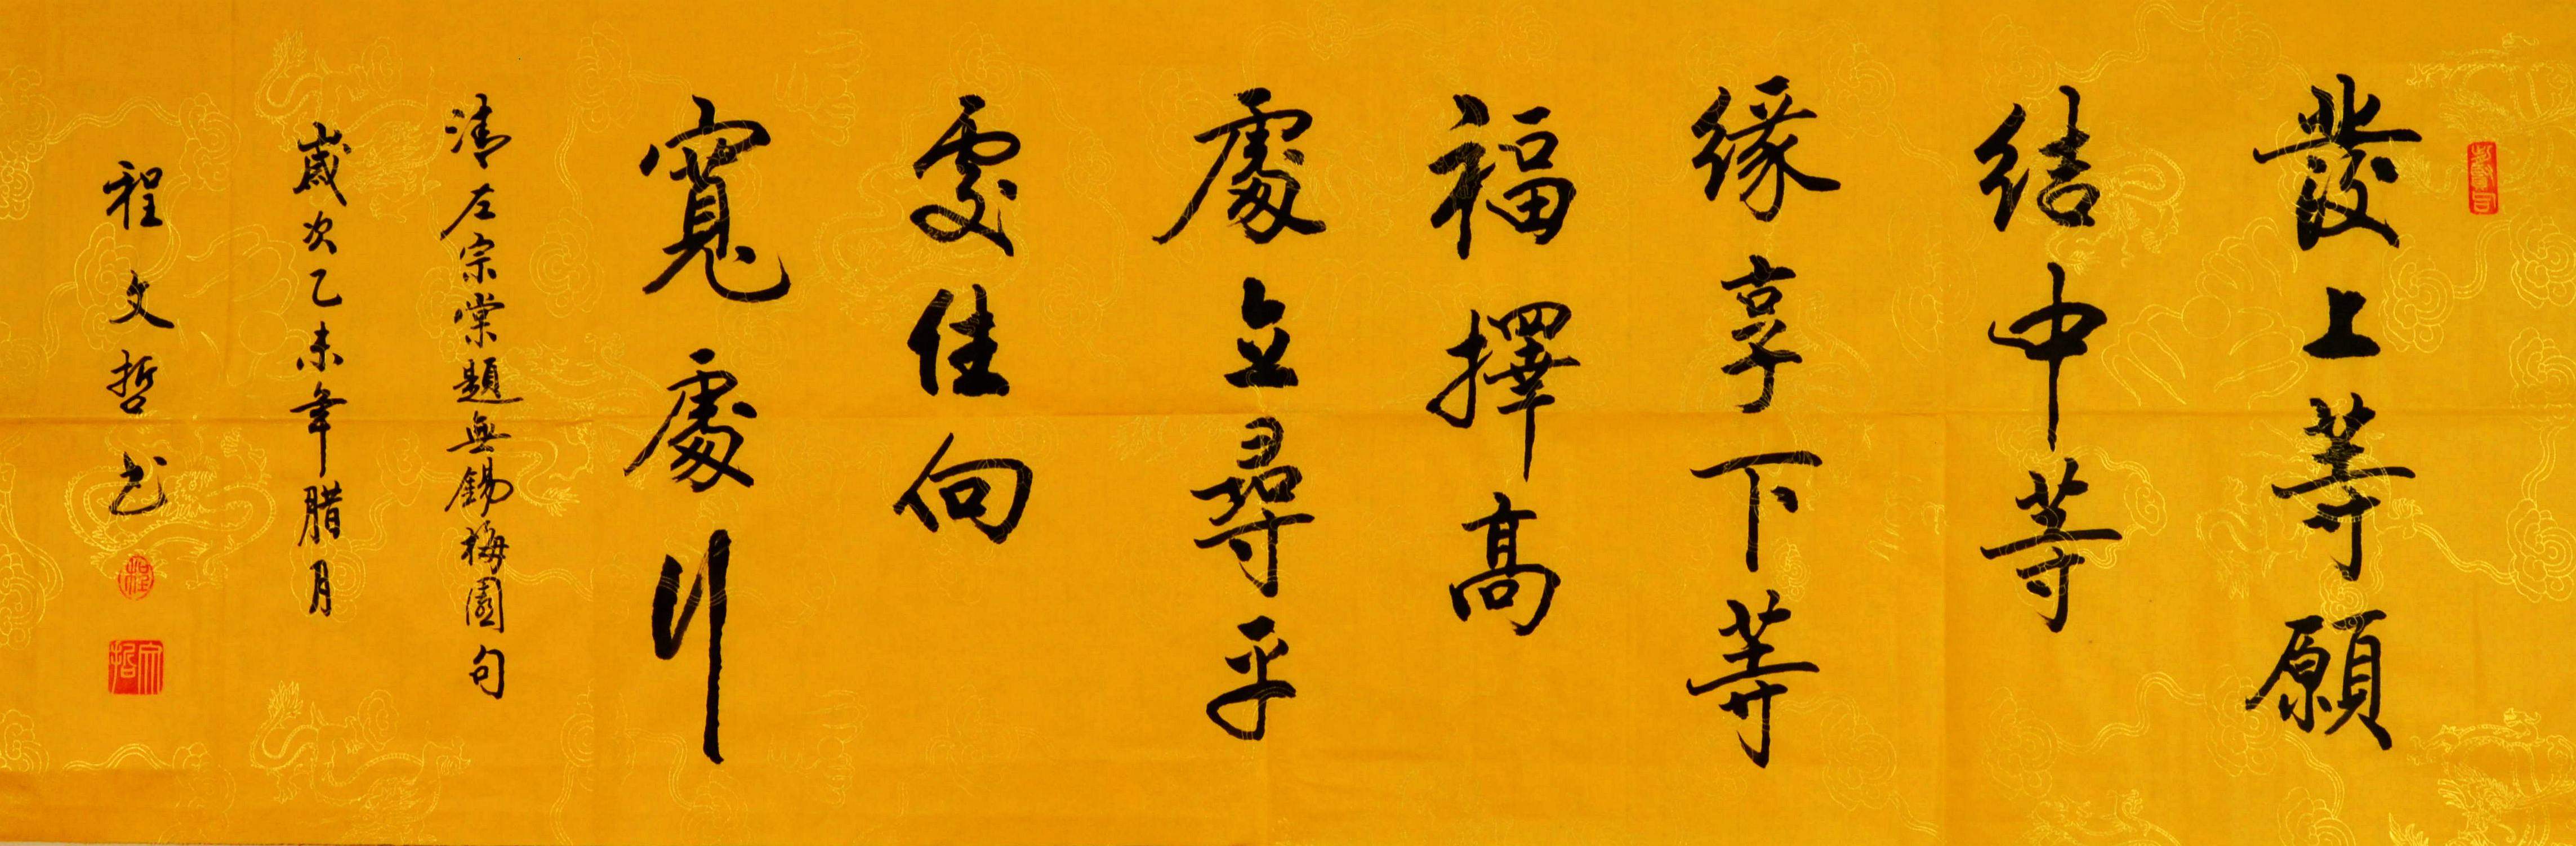 發上等願
結中等
緣享下等
福擇高
處立尋平
處住向
寬處行
清左宗棠題無錫梅園句
歲次乙未年腊月
程文哲书
程
文哲